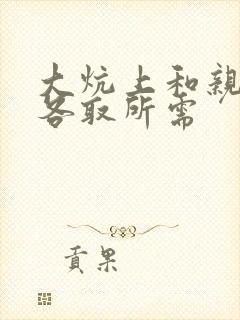 大炕上和親
各取所需
貢果